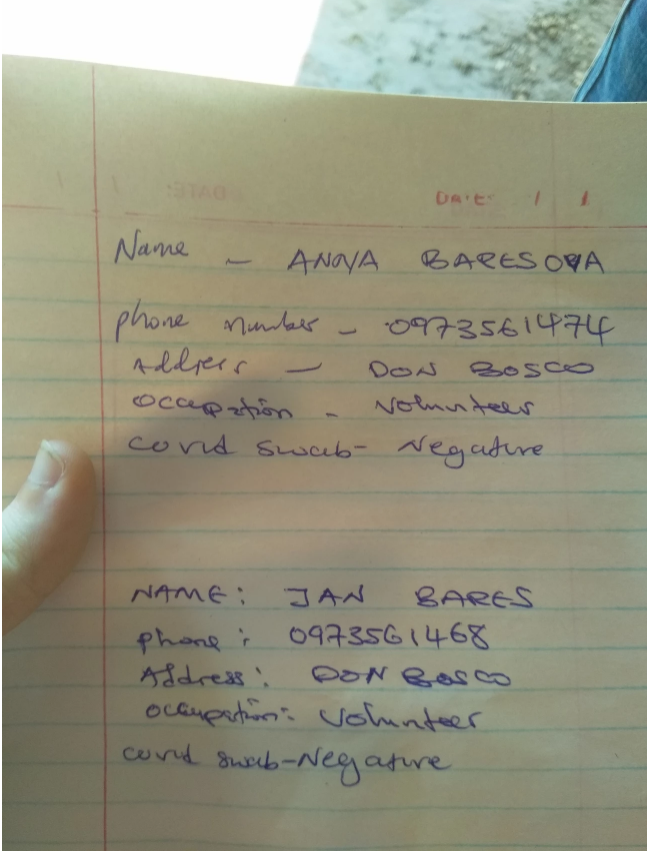 DATE: / /
Name - ANOYA BARESOVA
phone number - 0973561474
Address - DON BOSCO
occupation - Volunteer
covid swab- Negative
NAME: JAN BARES
phone: 0973561468
Address: DON BOSCO
occupation: Volunteer
covid swab-Negative